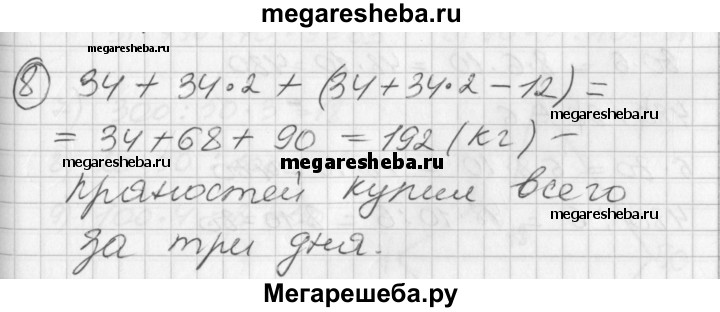 megaresheba.ru
megaresheba.ru
8 34 + 34·2 + (34+34·2-12) =
megaresheba.ru
= 34+68+90 = 192 (кг) -
megaresheba.ru
megaresheba.ru
пряностей купил всего
megaresheba.ru
за три дня.
Мегарешеба.ру